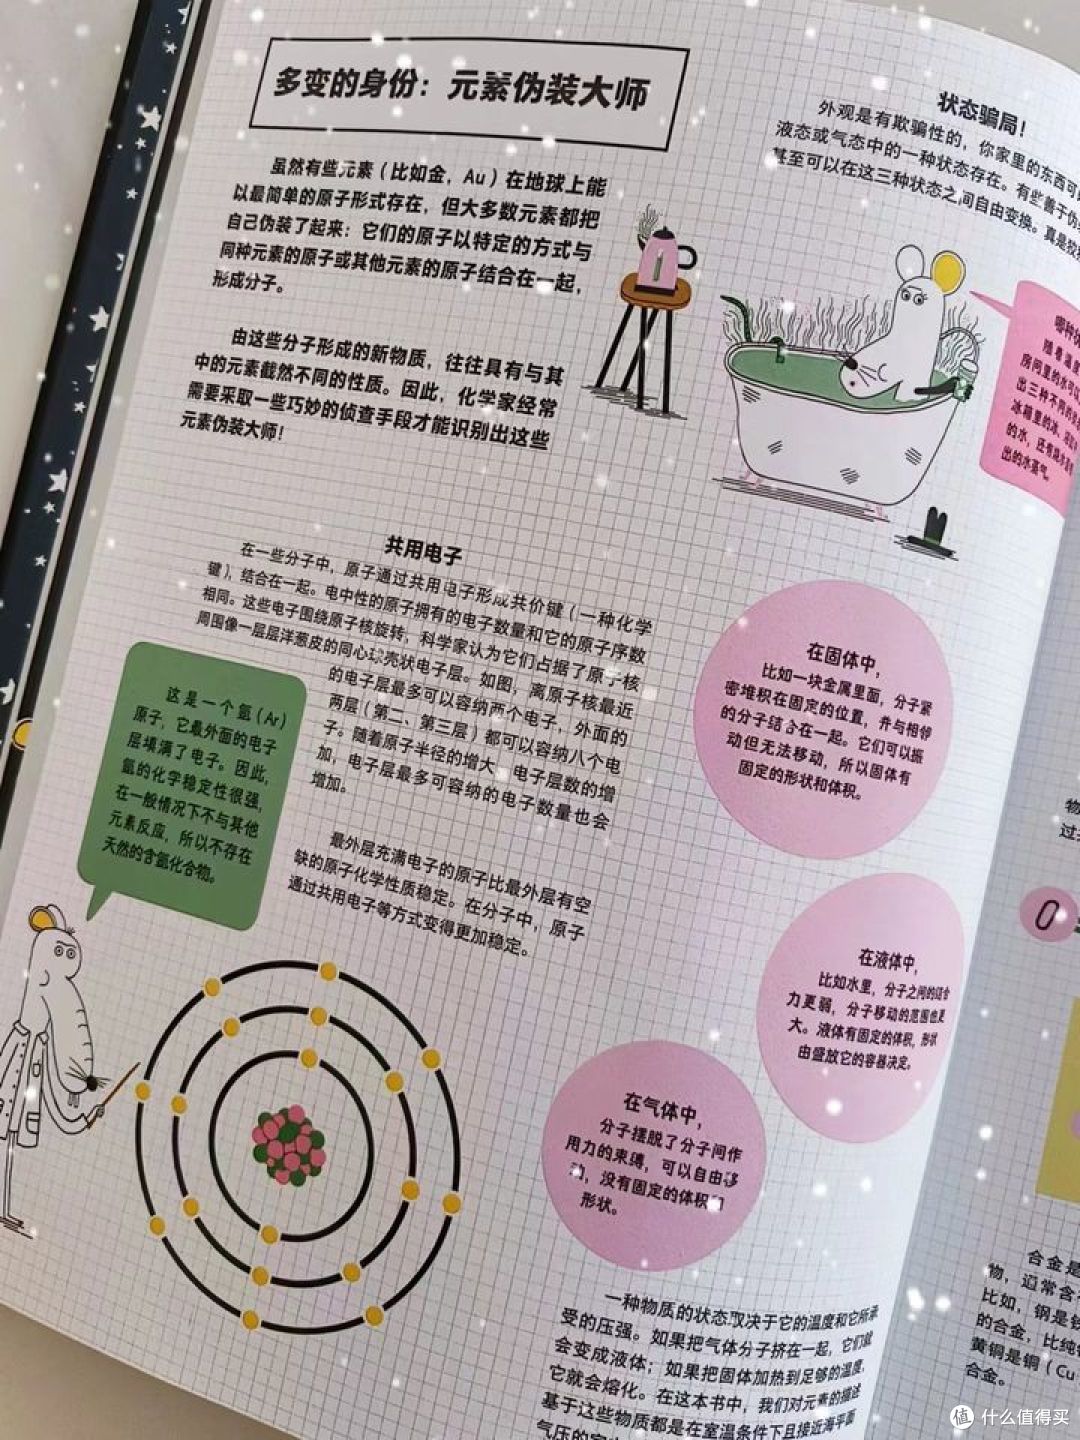 多变的身份：元素伪装大师
虽然有些元素（比如金，Au）在地球上能
以最简单的原子形式存在，但大多数元素都把
自己伪装了起来：它们的原子以特定的方式与
同种元素的原子或其他元素的原子结合在一起，
形成分子。
由这些分子形成的新物质，往往具有与其
中的元素截然不同的性质。因此，化学家经常
需要采取一些巧妙的侦查手段才能识别出这些
元素伪装大师！
共用电子
在一些分子中，原子通过共用电子形成共价键（一种化学
键），结合在一起。电中性的原子拥有的电子数量和它的原子序数
相同。这些电子围绕原子核旋转，科学家认为它们占据了原子核
周围像一层层洋葱皮的同心球壳状电子层。如图，离原子核最近
的电子层最多可以容纳两个电子，外面的
两层（第二、第三层）都可以容纳八个电
子。随着原子半径的增大，电子层数的增
加，电子层最多可容纳的电子数量也会
增加。
最外层充满电子的原子比最外层有空
缺的原子化学性质稳定。在分子中，原子
通过共用电子等方式变得更加稳定。
这是一个氩（Ar）
原子，它最外面的电子
层填满了电子。因此，
氩的化学稳定性很强，
在一般情况下不与其他
元素反应，所以不存在
天然的含氩化合物。
状态骗局！
外观是有欺骗性的，你家里的东西可
液态或气态中的一种状态存在。有些善于伪
甚至可以在这三种状态之间自由变换。真是狡
哪种状
随着温度
房间里的水可以
出三种不同的状
冰箱里的冰、浴缸
的水，还有
出的水蒸气。
在固体中，
比如一块金属里面，分子紧
密堆积在固定的位置，并与相邻
的分子结合在一起。它们可以振
动但无法移动，所以固体有
固定的形状和体积。
在液体中，
比如水里，分子之间的结合
力更弱，分子移动的范围也更
大。液体有固定的体积，形状
由盛放它的容器决定。
在气体中，
分子摆脱了分子间作
用力的束缚，可以自由移
动，没有固定的体积和
形状。
一种物质的状态取决于它的温度和它所承
受的压强。如果把气体分子挤在一起，它们就
会变成液体；如果把固体加热到足够的温度，
它就会熔化。在这本书中，我们对元素的描述
基于这些物质都是在室温条件下且接近海平面
气压的
物
过
合金是
物，通常含
比如，钢是铁
的合金，比纯
黄铜是铜（Cu
合金。
值 什么值得买